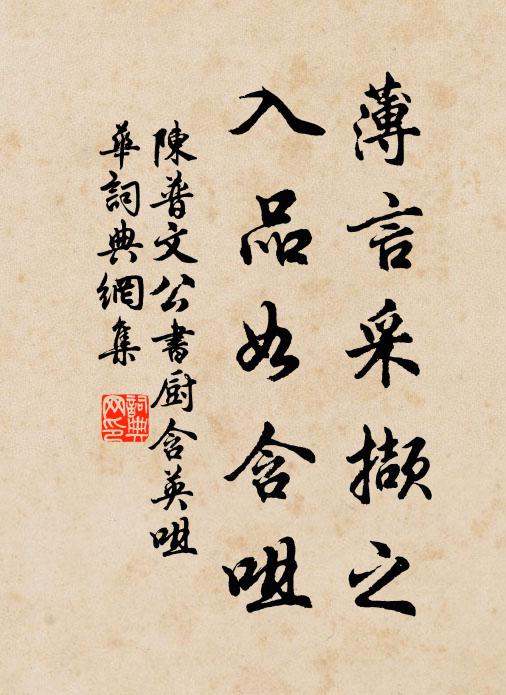 薄言采擷之
入品如含咀
陳普文公書厨含英咀
華詞典網集
詞典网印